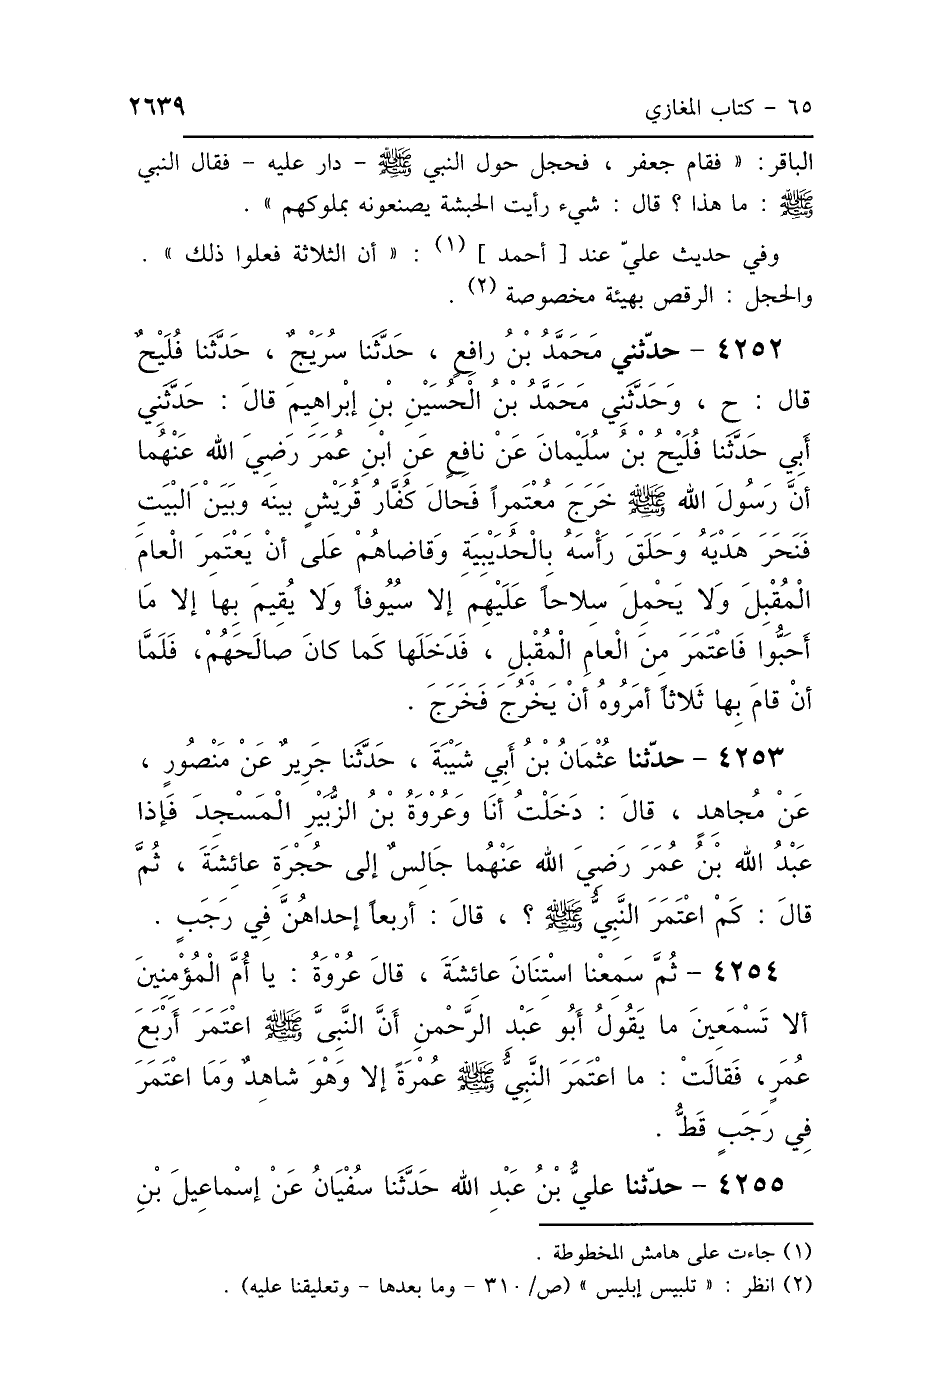 ٦٥ - كتاب المغازي ٢٦٣٩
الباقر : « فقام جعفر ، فحجل حول النبي ﷺ - دار عليه - فقال النبي
ﷺ : ما هذا ؟ قال : شيء رأيت الحبشة يصنعونه بملوكهم » .
وفي حديث عليّ عند [ أحمد ] (١) : « أن الثلاثة فعلوا ذلك » .
والحجل : الرقص بهيئة مخصوصة (٢) .
٤٢٥٢ - حدّثني مَحَمَّدُ بْنُ رافِعٍ ، حَدَّثَنا سُرَيْجٌ ، حَدَّثَنا فُلَيْحٌ
قال : ح ، وَحَدَّثَنِي مَحَمَّدُ بْنُ الْحُسَيْنِ بْنِ إبْراهِيمَ قالَ : حَدَّثَنِي
أَبِي حَدَّثَنا فُلَيْحُ بْنُ سُلَيْمانَ عَنْ نافِعٍ عَنِ ابْنِ عُمَرَ رَضِيَ الله عَنْهُما
أنَّ رَسُولَ الله ﷺ خَرَجَ مُعْتَمِراً فَحالَ كُفَّارُ قُرَيْشٍ بينَه وبَيَنَ الْبَيَت
فَنَحَرَ هَدْيَهُ وَحَلَقَ رَأْسَهُ بِالْحُدَيْبِيَةِ وَقاضاهُمْ عَلى أنْ يَعْتَمِرَ الْعامَ
الْمُقْبِلَ وَلا يَحْمِلَ سلاحاً عَلَيْهِم إلا سُيُوفاً وَلا يُقِيمَ بِها إلا ما
أَحَبُّوا فَاعْتَمَرَ مِنَ الْعامِ الْمُقْبِلِ ، فَدَخَلَها كَما كانَ صالَحَهُمْ، فَلَمَّا
أنْ قامَ بِها ثَلاثاً أمَرُوهُ أنْ يَخْرُجَ فَخَرَجَ .
٤٢٥٣ - حدّثنا عثْمَانُ بْنُ أَبِي شَيْبَةَ ، حَدَّثَنا جَرِيرٌ عَنْ مَنْصُورٍ ،
عَنْ مُجاهِدٍ ، قالَ : دَخَلْتُ أنَا وَعُرْوَةُ بْنُ الزُّبَيْرِ الْمَسْجِدَ فَإذا
عَبْدُ الله بْنُ عُمَرَ رَضِيَ الله عَنْهُما جَالِسٌ إلى حُجْرَةِ عائشَةَ ، ثُمَّ
قالَ : كَمْ اعْتَمَرَ النَّبِيُّ ﷺ ؟ ، قالَ : أربعاً إحداهُنَّ فِي رَجَبٍ .
٤٢٥٤ - ثُمَّ سَمِعْنا اسْتِنَانَ عائِشَةَ ، قالَ عُرْوَةُ : يا أُمَّ الْمُؤْمِنِينَ
ألا تَسْمَعِينَ ما يَقُولُ أبُو عَبْدِ الرَّحْمنِ أنَّ النَّبِيَّ ﷺ اعْتَمَرَ أَرْبَعَ
عُمَرٍ، فَقالَتْ : ما اعْتَمَرَ النَّبِيُّ ﷺ عُمْرَةً إلا وَهْوَ شاهِدٌ وَمَا اعْتَمَرَ
فِي رَجَبٍ قَطُّ .
٤٢٥٥ - حدّثنا عليُّ بْنُ عَبْدِ الله حَدَّثَنا سفْيَانُ عَنْ إسْماعِيلَ بْنِ
(١) جاءت على هامش المخطوطة .
(٢) انظر : « تلبيس إبليس » (ص/ ٣١٠ - وما بعدها - وتعليقنا عليه) .